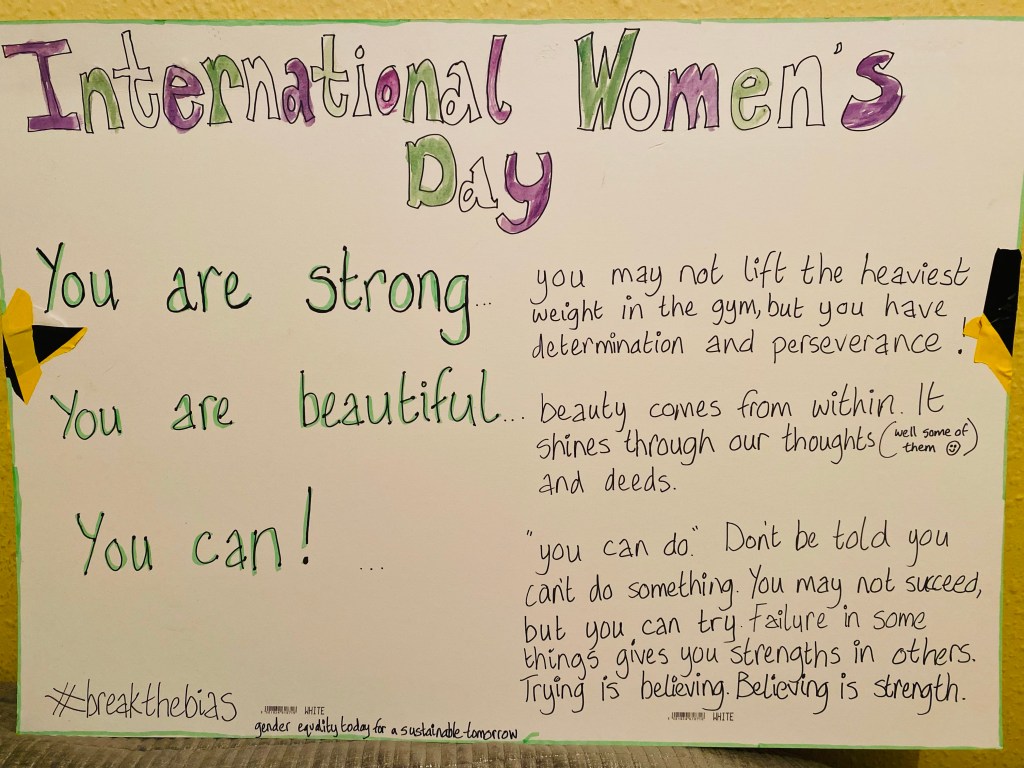 International Women's
Day
You are strong...
you may not lift the heaviest
weight in the gym, but you have
determination and perseverance!
You are beautiful...
beauty comes from within. It
shines through our thoughts (well some of
them ☺)
and deeds.
You can! ...
"you can do." Don't be told you
can't do something. You may not succeed,
but you can try. Failure in some
things gives you strengths in others.
Trying is believing. Believing is strength.
#breakthebias
WHITE
WHITE
gender equality today for a sustainable tomorrow